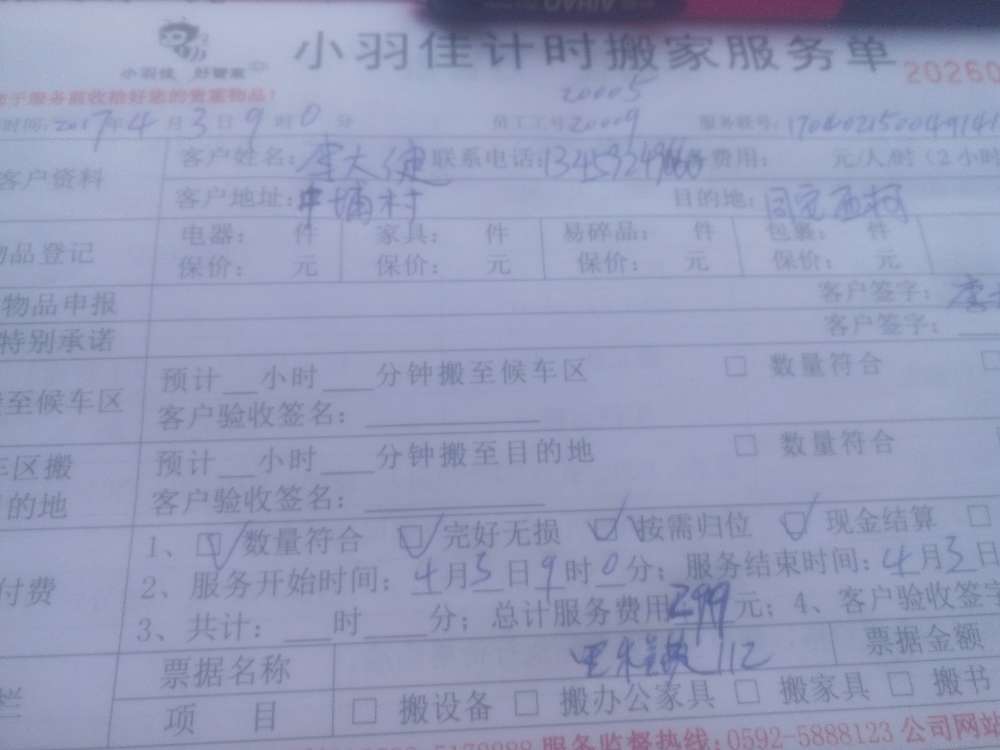 小羽佳 好管家
小羽佳计时搬家服务单
20260
于服务前收拾好您的贵重物品!
20005
时间: 2017年4月3日9时0分 员工工号20009 服务账号:
客户资料 客户姓名: 李大健 联系电话: 费用: 元/人/时(2小时
客户地址: 中埔村 目的地: 同安西柯
物品登记 电器: 件 家具: 件 易碎品: 件 包裹: 件
保价: 元 保价: 元 保价: 元 保价: 元
物品申报 客户签字: 李
特别承诺 客户签字:
至候车区 预计__小时___分钟搬至候车区 □ 数量符合 □
客户验收签名:
车区搬 预计__小时___分钟搬至目的地 □ 数量符合
的地 客户验收签名:
1、☑数量符合 ☑完好无损 ☑按需归位 ☑现金结算 □
付费 2、服务开始时间: 4月3日9时0分; 服务结束时间: 4月3日
3、共计: ___时____分; 总计服务费用299元; 4、客户验收签字
栏 票据名称 112 票据金额
项目 □ 搬设备 □ 搬办公家具 □ 搬家具 □ 搬书
服务监督热线: 0592-5888123 公司网站